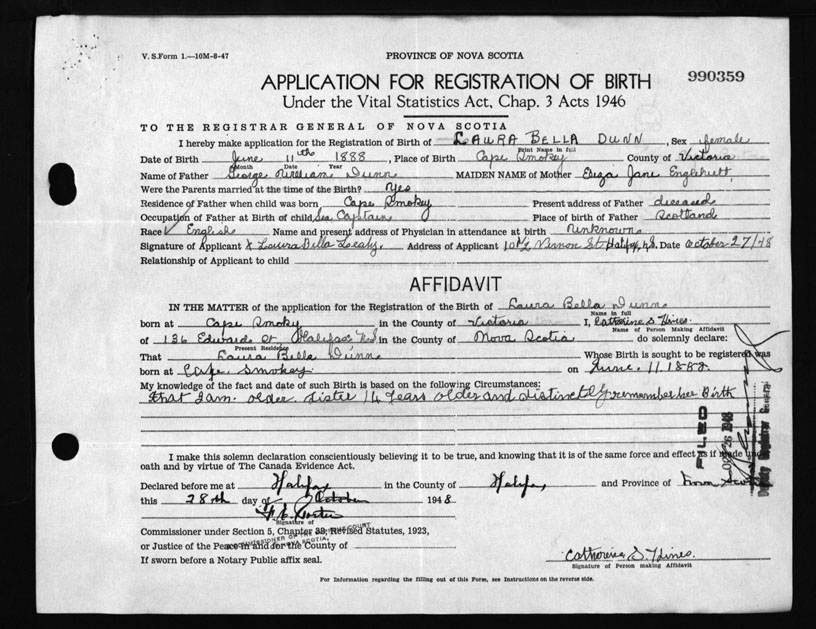 V. S. Form 1.—10M-8-47
PROVINCE OF NOVA SCOTIA
APPLICATION FOR REGISTRATION OF BIRTH
990359
Under the Vital Statistics Act, Chap. 3 Acts 1946
TO THE REGISTRAR GENERAL OF NOVA SCOTIA
I hereby make application for the Registration of Birth of LAURA BELLA DUNN, Sex female
Print Name in full
Date of Birth June 11th 1888, Place of Birth Cape Smokey County of Victoria
Month Date Year
Name of Father George William Dunn MAIDEN NAME of Mother Eliza Jane
Were the Parents married at the time of the Birth? Yes
Residence of Father when child was born Cape Smokey Present address of Father deceased
Occupation of Father at Birth of child Sea Captain Place of Birth of Father Scotland
Race English Name and present address of Physician in attendance at birth Unknown
Signature of Applicant x Laura Bella Leahy Address of Applicant Vernon St Halifax, N.S. Date October 27/48
Relationship of Applicant to child
AFFIDAVIT
IN THE MATTER of the application for the Registration of the Birth of Laura Bella Dunn
Name in full
born at Cape Smoky in the County of Victoria I, Catherine S. Hines
Name of Person Making Affidavit
of 136 Edward St Halifax N.S. in the County of Nova Scotia do solemnly declare:
Present Residence
That Laura Bella Dunn Whose Birth is sought to be registered was
born at Cape Smokey on June. 11. 1888.
My knowledge of the fact and date of such Birth is based on the following Circumstances:
that I am. older sister 14 years older and distinctly remember her Birth
FILED
OCT 28 1948
Deputy Registrar General
I make this solemn declaration conscientiously believing it to be true, and knowing that it is of the same force and effect as if made under
oath and by virtue of The Canada Evidence Act.
Declared before me at Halifax in the County of Halifax, and Province of Nova Scotia
this 28th day of October 1948
Signature of
Commissioner under Section 5, Chapter 38, Revised Statutes, 1923,
or Justice of the Peace in and for the County of
A COMMISSIONER OF THE SUPREME COURT
OF NOVA SCOTIA,
If sworn before a Notary Public affix seal.
Catherine S. Hines.
Signature of Person making Affidavit
For Information regarding the filling out of this Form, see Instructions on the reverse side.